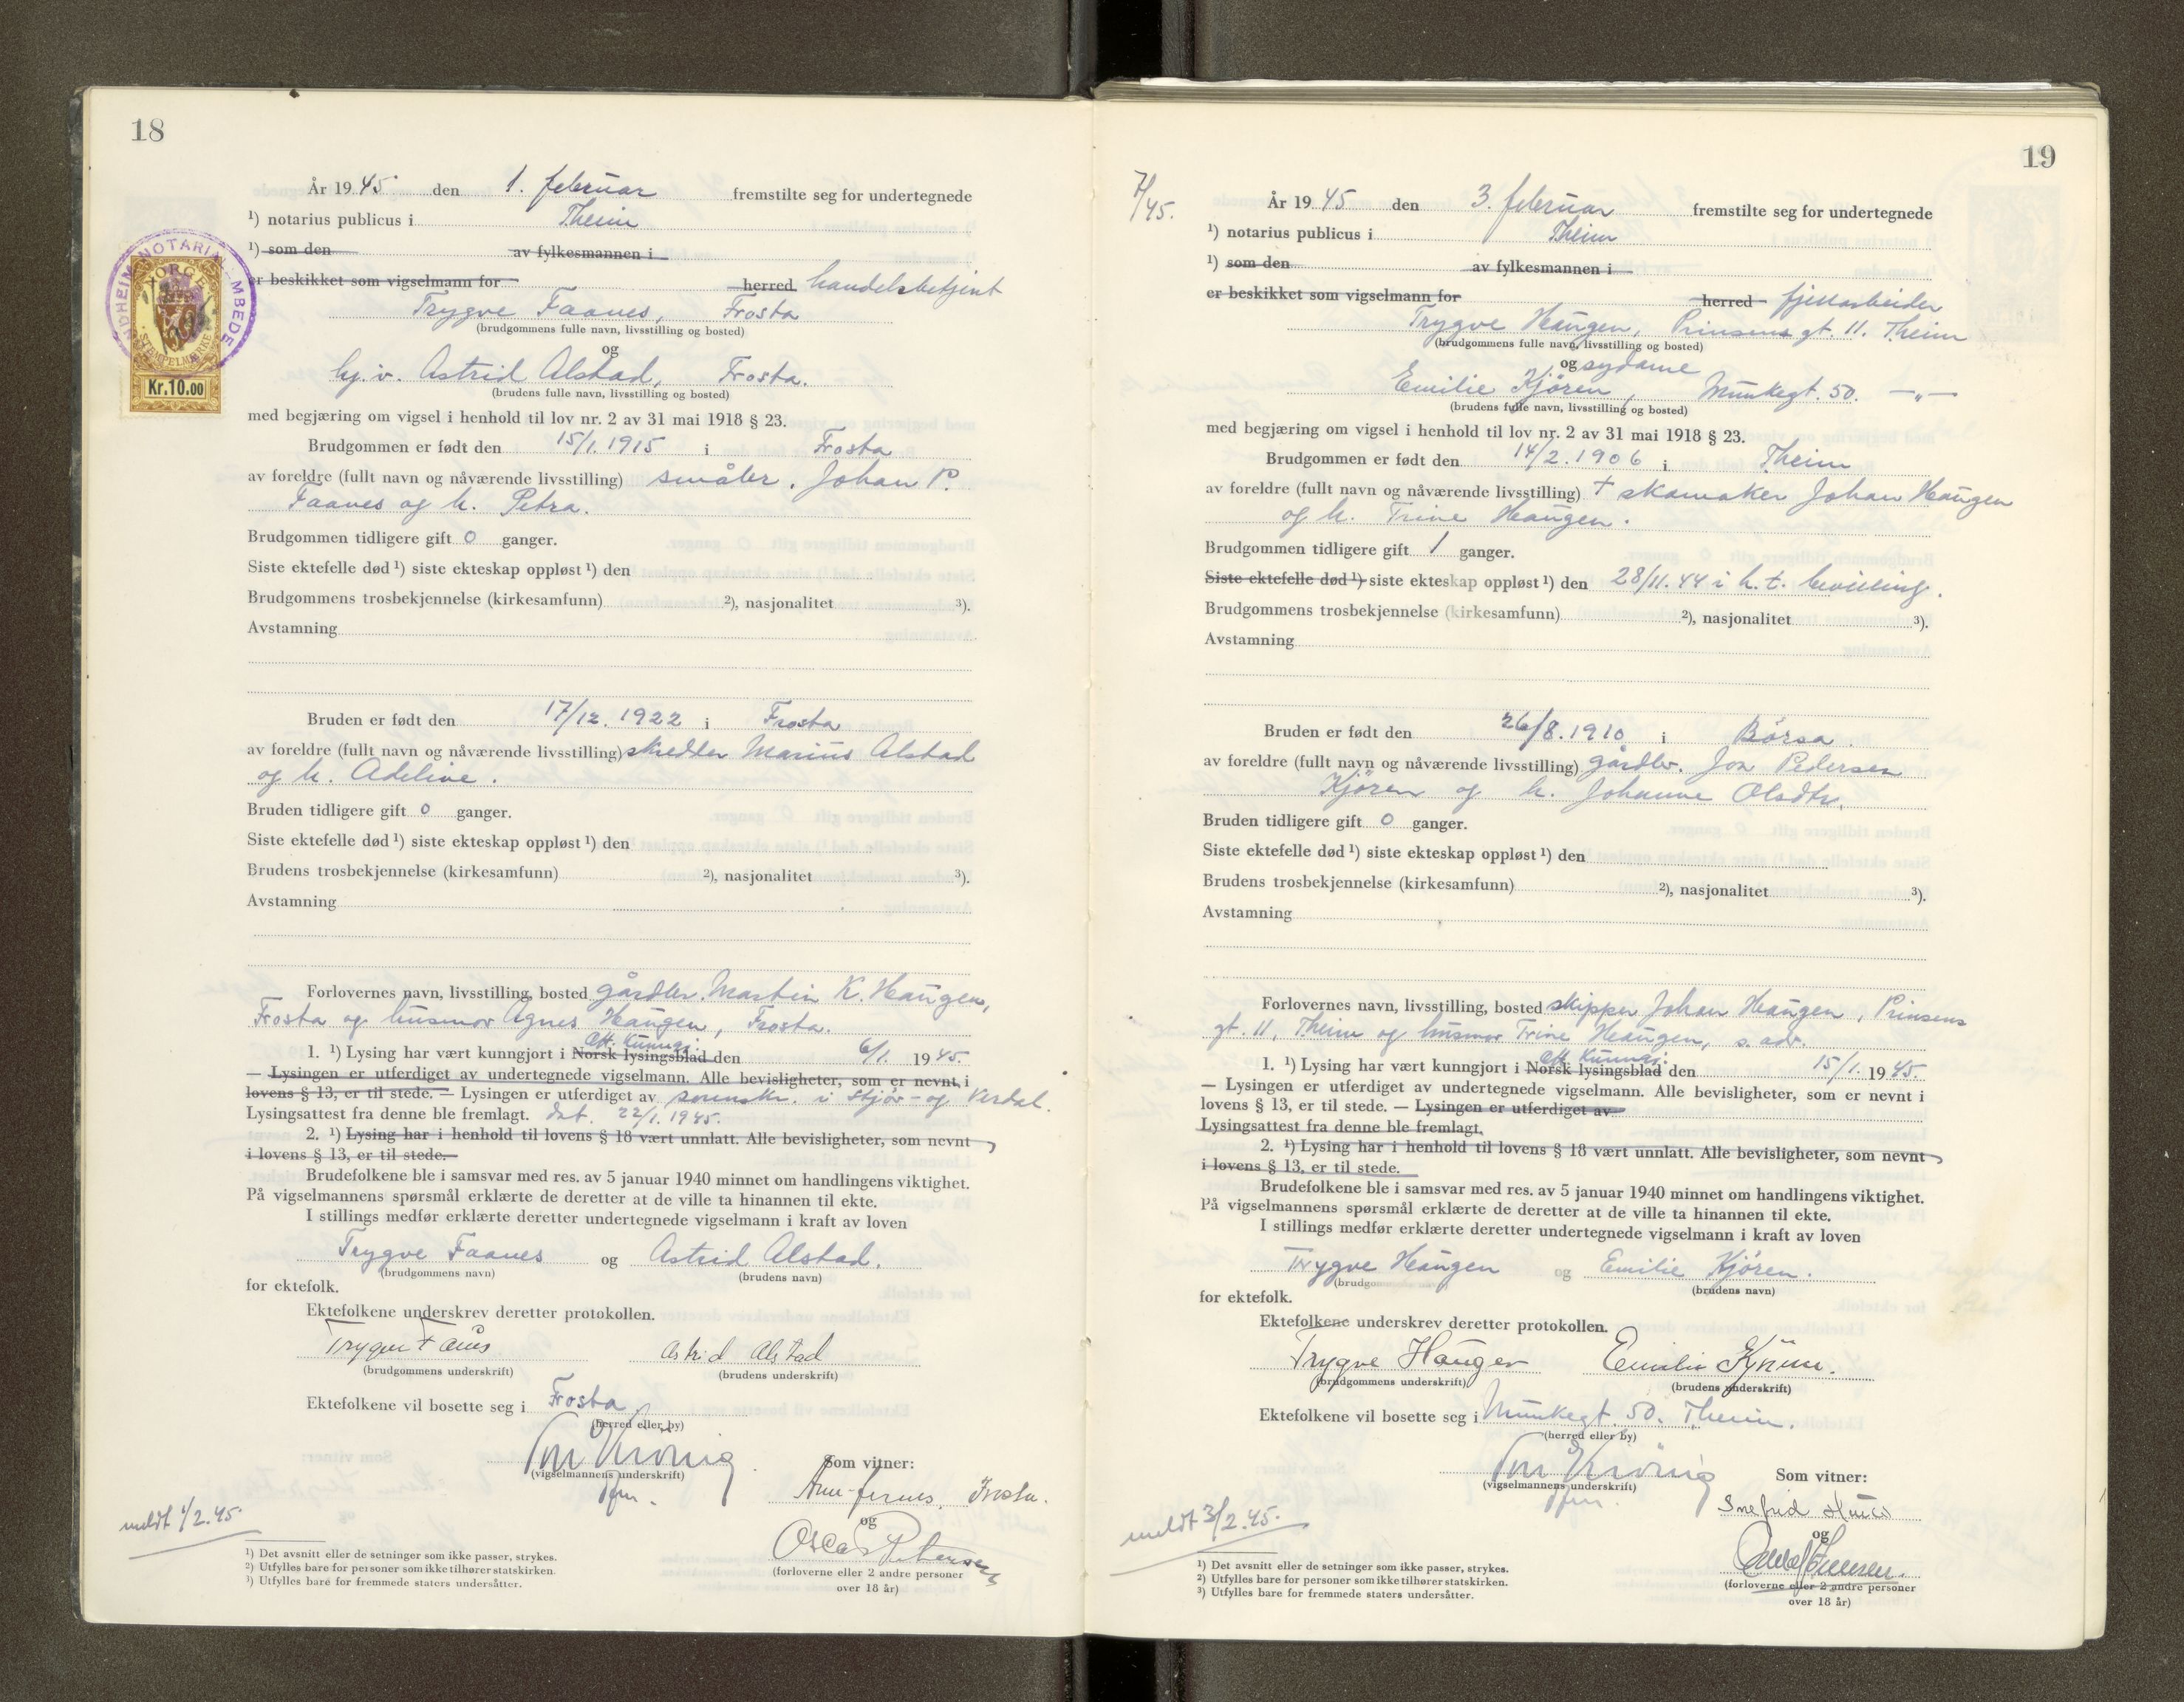 18
År 1945 den 1. februar fremstilte seg for undertegnede
¹) notarius publicus i Theim
¹) som den av fylkesmannen i
er beskikket som vigselmann for herred handelsbetjent
Trygve Faanes, Frosta
(brudgommens fulle navn, livsstilling og bosted)
og
hj.v. Astrid Alstad, Frosta.
(brudens fulle navn, livsstilling og bosted)
med begjæring om vigsel i henhold til lov nr. 2 av 31 mai 1918 § 23.
Brudgommen er født den 15/1. 1915 i Frosta
av foreldre (fullt navn og nåværende livsstilling) småbr. Johan P.
Faanes og h. Petra.
Brudgommen tidligere gift 0 ganger.
Siste ektefelle død ¹) siste ekteskap oppløst ¹) den
Brudgommens trosbekjennelse (kirkesamfunn) ²), nasjonalitet ³).
Avstamning
Bruden er født den 17/12. 1922 i Frosta
av foreldre (fullt navn og nåværende livsstilling) Marius Alstad
og h. Adeline.
Bruden tidligere gift 0 ganger.
Siste ektefelle død ¹) siste ekteskap oppløst ¹) den
Brudens trosbekjennelse (kirkesamfunn) ²), nasjonalitet ³).
Avstamning
Forlovernes navn, livsstilling, bosted gårdbr. Martin K. Haugen,
Frosta og husmor Agnes Haugen, Frosta.
Off. Kunngj.
1. ¹) Lysing har vært kunngjort i Norsk lysingsblad den 6/1. 1945.
— Lysingen er utferdiget av undertegnede vigselmann. Alle bevisligheter, som er nevnt, i
lovens § 13, er til stede. — Lysingen er utferdiget av sorenskr. i Stjør- og Verdal.
Lysingsattest fra denne ble fremlagt. dat. 22/1. 1945.
2. ¹) Lysing har i henhold til lovens § 18 vært unnlatt. Alle bevisligheter, som nevnt
i lovens § 13, er til stede.
Brudefolkene ble i samsvar med res. av 5 januar 1940 minnet om handlingens viktighet.
På vigselmannens spørsmål erklærte de deretter at de ville ta hinannen til ekte.
I stillings medfør erklærte deretter undertegnede vigselmann i kraft av loven
Trygve Faanes og Astrid Alstad.
(brudgommens navn) (brudens navn)
for ektefolk.
Ektefolkene underskrev deretter protokollen.
Trygve Faanes Astrid Alstad
(brudgommens underskrift) (brudens underskrift)
Ektefolkene vil bosette seg i Frosta
(herred eller by)
(vigselmannens underskrift)
Som vitner:
Frosta.
og
Oscar Petersen
(forloverne eller 2 andre personer
over 18 år)
meldt 1/2.45.
¹) Det avsnitt eller de setninger som ikke passer, strykes.
²) Utfylles bare for personer som ikke tilhører statskirken.
³) Utfylles bare for fremmede staters undersåtter.
NORGE
STEMPELMERKE
Kr. 10.00
19
7/45.
År 1945 den 3. februar fremstilte seg for undertegnede
¹) notarius publicus i Theim
¹) som den av fylkesmannen i
er beskikket som vigselmann for herred
Trygve Haugen, Prinsens gt. 11. Theim
(brudgommens fulle navn, livsstilling og bosted)
og sydame
Emilie Kjøren, Munkegt. 50. —"—
(brudens fulle navn, livsstilling og bosted)
med begjæring om vigsel i henhold til lov nr. 2 av 31 mai 1918 § 23.
Brudgommen er født den 14/2. 1906 i Theim
av foreldre (fullt navn og nåværende livsstilling) + skomaker Johan Haugen
og h. Trine Haugen.
Brudgommen tidligere gift 1 ganger.
Siste ektefelle død ¹) siste ekteskap oppløst ¹) den 28/11.44 i h.t. bevilling.
Brudgommens trosbekjennelse (kirkesamfunn) ²), nasjonalitet ³).
Avstamning
Bruden er født den 26/8. 1910 i Børsa.
av foreldre (fullt navn og nåværende livsstilling) gårdbr. Jon Pedersen
Kjøren og h. Johanne Olsdtr.
Bruden tidligere gift 0 ganger.
Siste ektefelle død ¹) siste ekteskap oppløst ¹) den
Brudens trosbekjennelse (kirkesamfunn) ²), nasjonalitet ³).
Avstamning
Forlovernes navn, livsstilling, bosted skipper Johan Haugen, Prinsens
gt. 11, Theim og husmor Trine Haugen, s. adr.
Off. Kunngj.
1. ¹) Lysing har vært kunngjort i Norsk lysingsblad den 15/1. 1945.
— Lysingen er utferdiget av undertegnede vigselmann. Alle bevisligheter, som er nevnt i
lovens § 13, er til stede. — Lysingen er utferdiget av
Lysingsattest fra denne ble fremlagt.
2. ¹) Lysing har i henhold til lovens § 18 vært unnlatt. Alle bevisligheter, som nevnt
i lovens § 13, er til stede.
Brudefolkene ble i samsvar med res. av 5 januar 1940 minnet om handlingens viktighet.
På vigselmannens spørsmål erklærte de deretter at de ville ta hinannen til ekte.
I stillings medfør erklærte deretter undertegnede vigselmann i kraft av loven
Trygve Haugen og Emilie Kjøren.
(brudgommens navn) (brudens navn)
for ektefolk.
Ektefolkene underskrev deretter protokollen.
Trygve Haugen Emilie Kjøren.
(brudgommens underskrift) (brudens underskrift)
Ektefolkene vil bosette seg i Munkegt. 50. Theim.
(herred eller by)
(vigselmannens underskrift)
Som vitner:
og
(forloverne eller 2 andre personer
over 18 år)
meldt 3/2.45.
¹) Det avsnitt eller de setninger som ikke passer, strykes.
²) Utfylles bare for personer som ikke tilhører statskirken.
³) Utfylles bare for fremmede staters undersåtter.